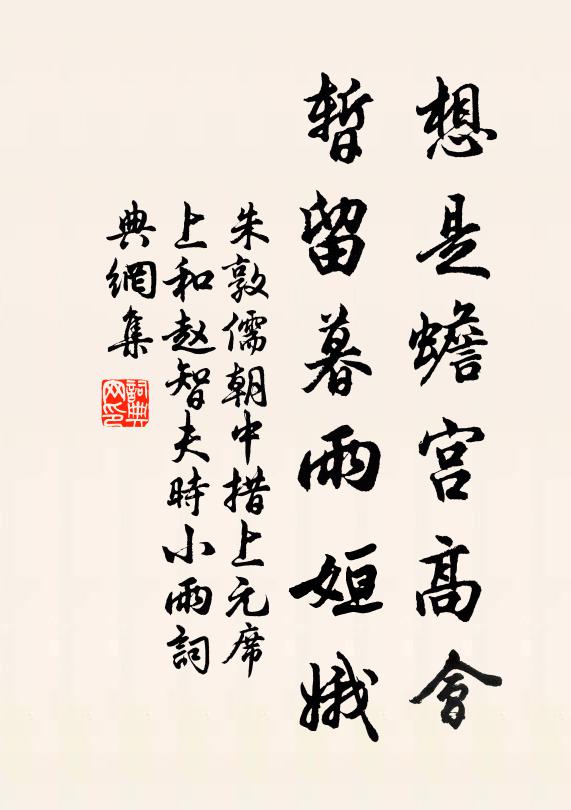 想是蟾宮高會
暫留暮雨姮娥
朱敦儒朝中措上元席
上和赵智夫時小雨詞
典網集
詞典網印